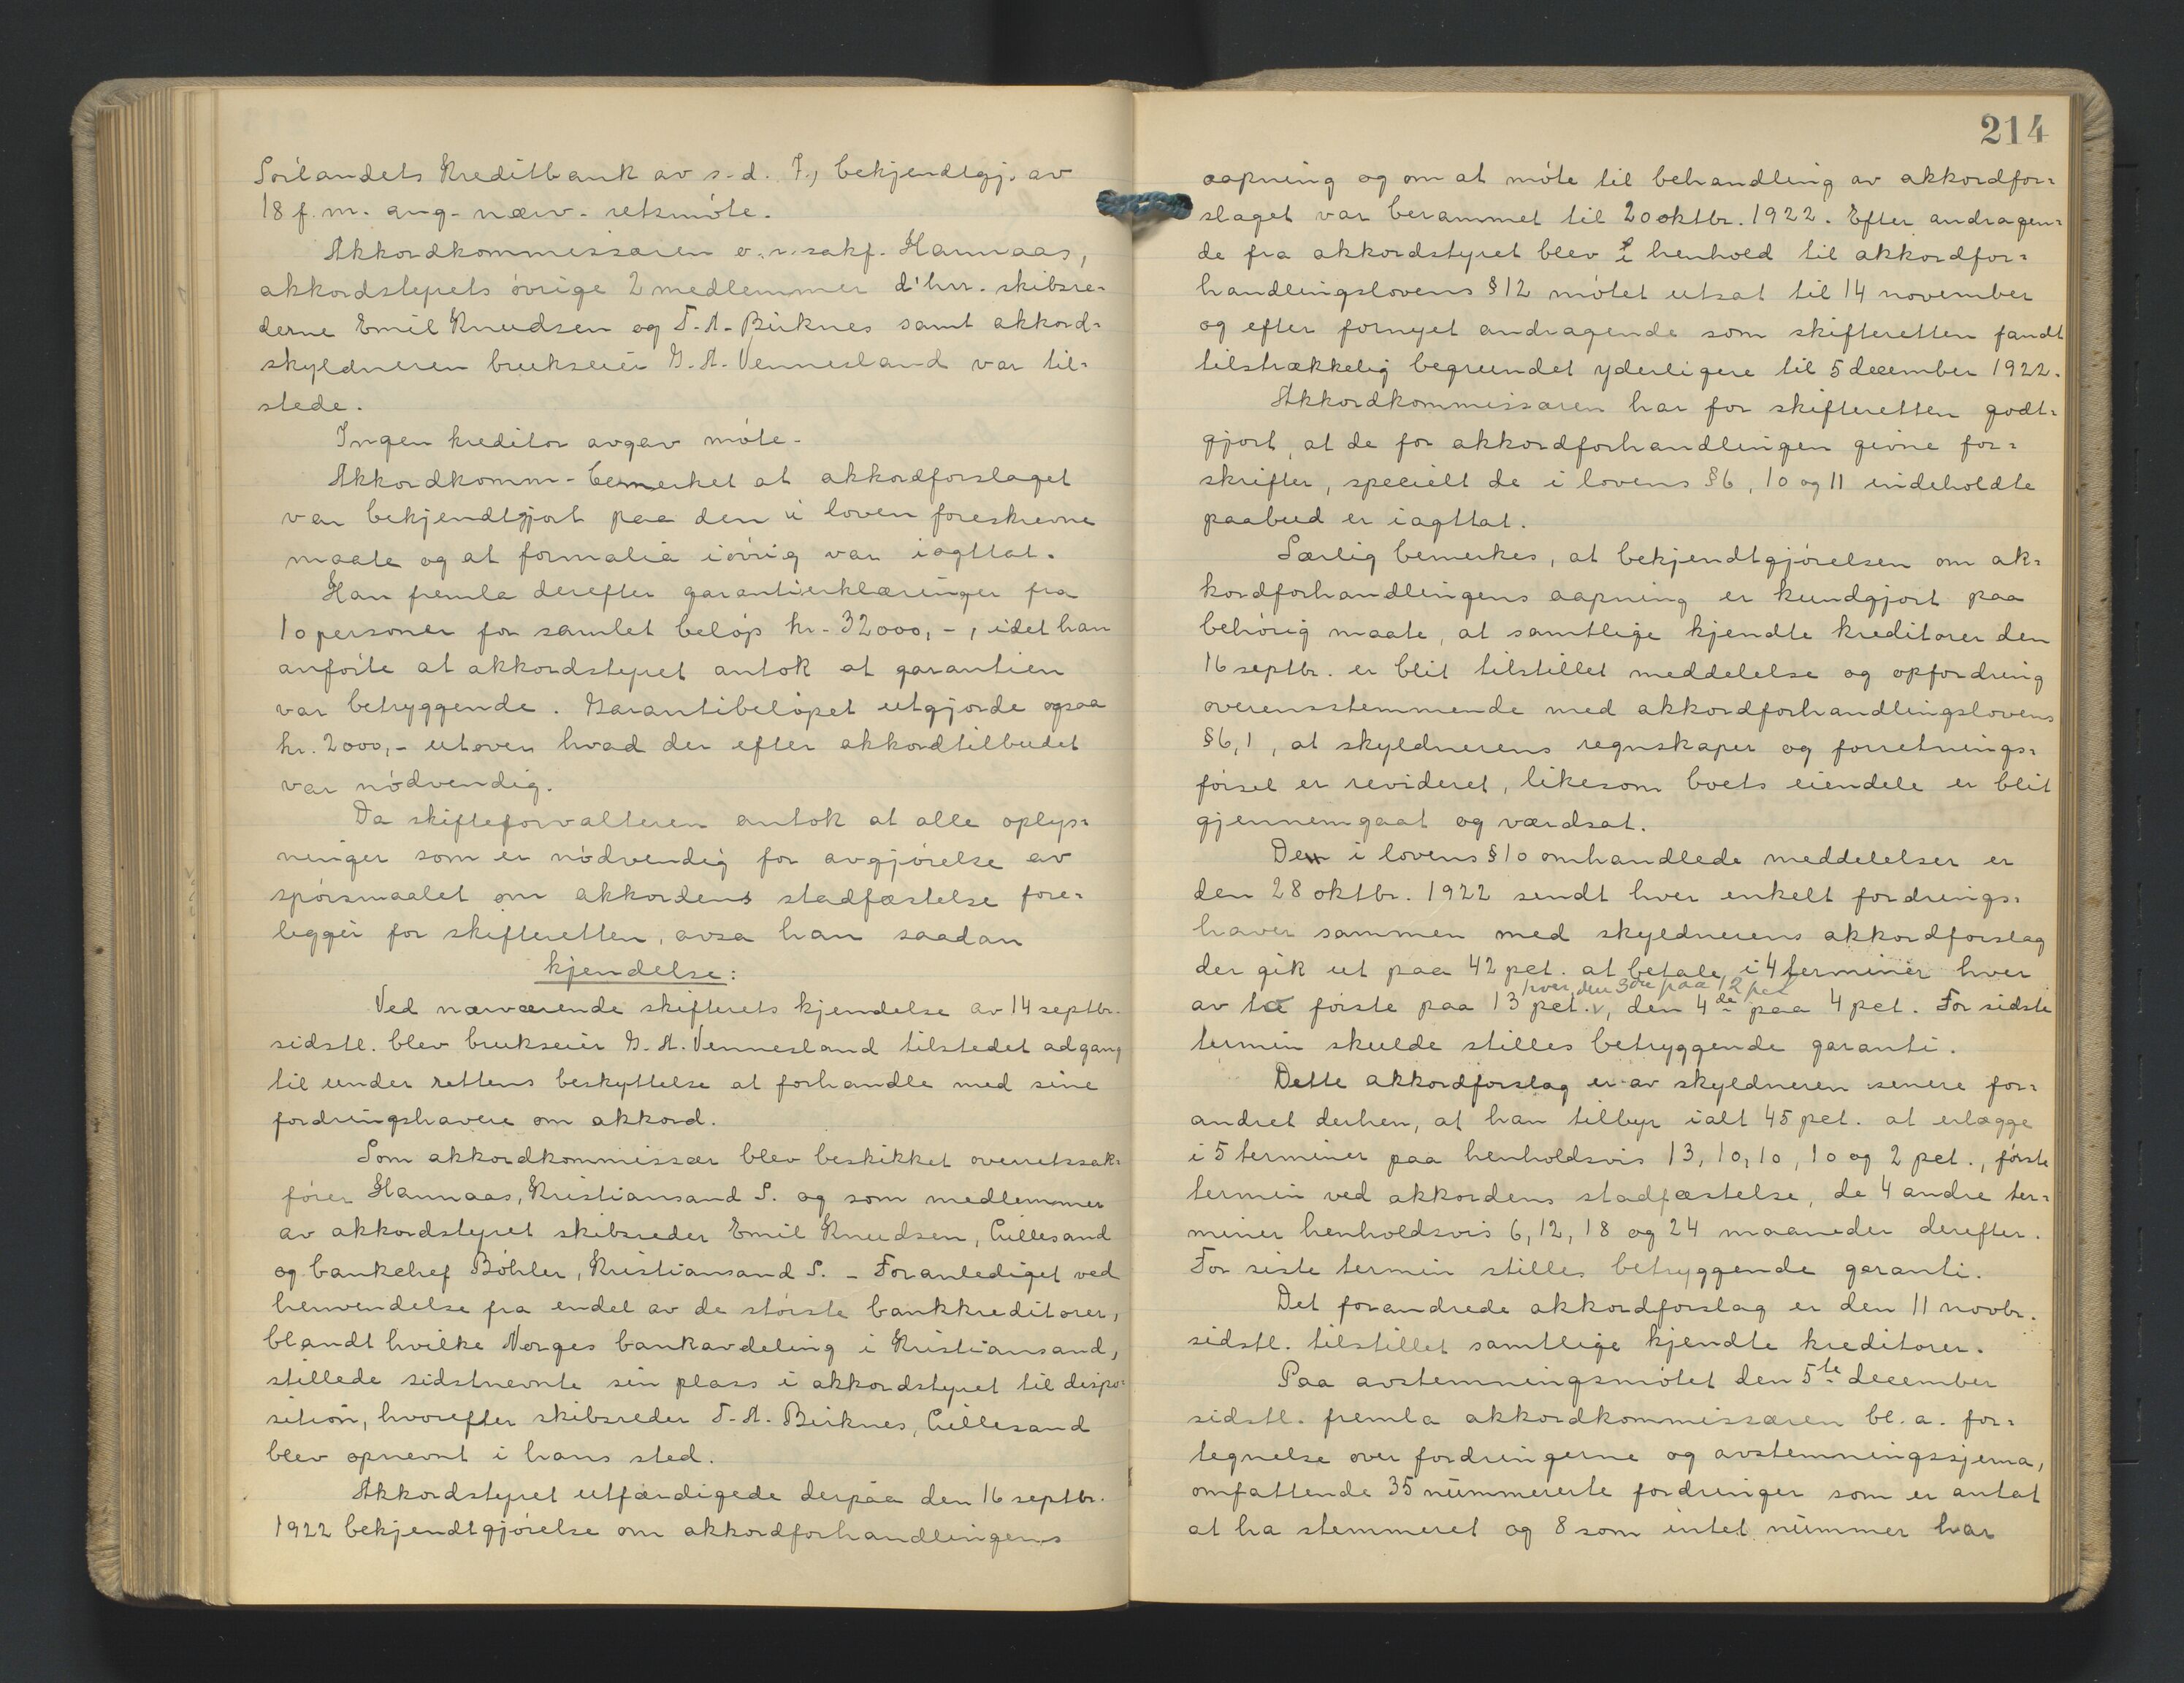 Sórlandets Kreditbank av s.d. 7., bekjendtgj. av
18 f.m. ang. nærv. retsmóte.
Akkordkommissæren o.r.sakf. Hannaas,
akkordstyrets óvrige 2 medlemmer d'hrr. skibsre=
derne Emil Knudsen og T. A. Birknes samt akkord=
skyldneren brukseier G. A. Vennesland var til=
stede.
Ingen kreditor avgav móte.
Akkordkomm. bemerket at akkordforslaget
var bekjendtgjort paa den i loven foreskrevne
maate og at formalia ióvrig var iagttat.
Han fremla derefter garantierklæringer fra
10 personer for samlet belóp kr. 32000,-, idet han
anfórte at akkordstyret antok at garantien
var betryggende. Garantibelópet utgjorde ogsaa
kr. 2000,- utover hvad der efter akkordtilbudet
var nódvendig.
Da skifteforvalteren antok at alle oplys=
ninger som er nódvendig for avgjórelse av
spórsmaalet om akkordens stadfæstelse fore=
ligger for skifteretten, avsa han saadan
kjendelse:
Ved nærværende skifterets kjendelse av 14 septbr.
sidstl. blev brukseier G. A. Vennesland tilstedet adgang
til under rettens beskyttelse at forhandle med sine
fordringshavere om akkord.
Som akkordkommissær blev beskikket overretssak=
fórer Hannaas, Kristiansand S. og som medlemmer
av akkordstyret skibsreder Emil Knudsen, Lillesand
og bankchef Böhler, Kristiansand S. - Foranlediget ved
henvendelse fra endel av de stórste bankkreditorer,
blandt hvilke Norges bankavdeling i Kristiansand,
stillede sidstnevnte sin plass i akkordstyret til dispo=
sition, hvorefter skibsreder T. A. Birknes, Lillesand
blev opnevnt i hans sted.
Akkordstyret utfærdigede derpaa den 16 septbr.
1922 bekjendtgjórelse om akkordforhandlingens
214
aapning og om at móte til behandling av akkordfor=
slaget var berammet til 20 oktbr. 1922. Efter andragen=
de fra akkordstyret blev i henhold til akkordfor=
handlingslovens §12 mótet utsat til 14 november
og efter fornyet andragende som skifteretten fandt
tilstrækkelig begrundet yderligere til 5 december 1922.
Akkordkommissæren har for skifteretten godt=
gjort, at de for akkordforhandlingen givne for=
skrifter, specielt de i lovens §6, 10 og 11 indeholdte
paabud er iagttat.
Særlig bemerkes, at bekjendtgjórelsen om ak=
kordforhandlingens aapning er kundgjort paa
behórig maate, at samtlige kjendte kreditorer den
16 septbr. er blit tilstillet meddelelse og opfordring
overensstemmende med akkordforhandlingslovens
§6,1, at skyldnerens regnskaper og forretnings=
fórsel er revideret, likesom boets eiendele er blit
gjennemgaat og værdsat.
De i lovens §10 omhandlede meddelelser er
den 28 oktbr. 1922 sendt hver enkelt fordrings=
haver sammen med skyldnerens akkordforslag
der gik ut paa 42 pct. at betale i 4 terminer hver
hver, den 3die paa 12 pct
av to fórste paa 13 pct. v, den 4de paa 4 pct. For sidste
termin skulde stilles betryggende garanti.
Dette akkordforslag er av skyldneren senere for=
andret derhen, at han tilbyr ialt 45 pct. at erlægge
i 5 terminer paa henholdsvis 13, 10, 10, 10 og 2 pct., fórste
termin ved akkordens stadfæstelse, de 4 andre ter=
miner henholdsvis 6, 12, 18 og 24 maaneder derefter.
For siste termin stilles betryggende garanti.
Det forandrede akkordforslag er den 11 novbr.
sidstl. tilstillet samtlige kjendte kreditorer.
Paa avstemningsmótet den 5te december
sidstl. fremla akkordkommissæren bl.a. for=
tegnelse over fordringerne og avstemningssjema,
omfattende 35 nummererte fordringer som er antat
at ha stemmeret og 8 som intet nummer har